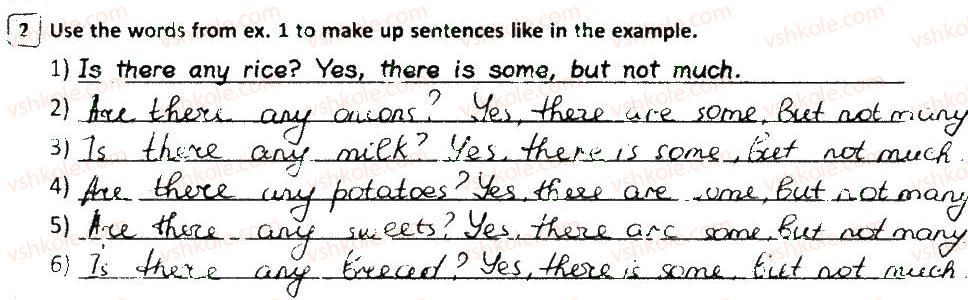 2 Use the words from ex. 1 to make up sentences like in the example.
1) Is there any rice? Yes, there is some, but not much.
2) Are there any onions? Yes, there are some, but not many
3) Is there any milk? Yes, there is some, but not much.
4) Are there any potatoes? Yes, there are some, but not many
5) Are there any sweets? Yes, there are some, but not many
6) Is there any bread? Yes, there is some, but not much.